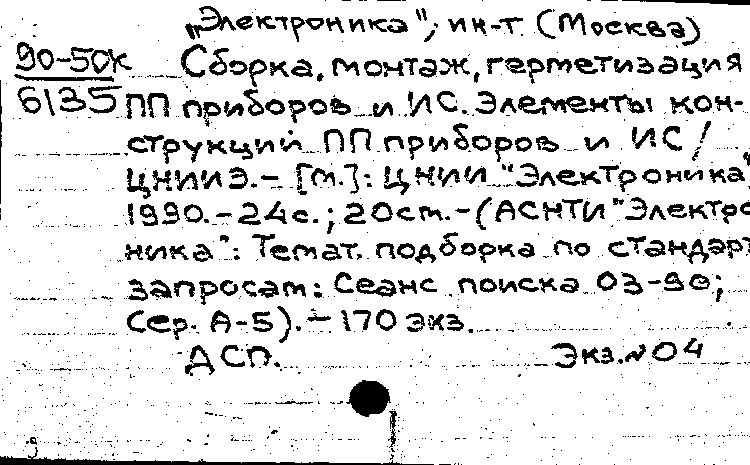 „Электроника", ин-т (Москва)
90-50к
6135
Сборка, монтаж, герметизация
ПП приборов и ИС. Элементы кон-
струкций ПП приборов и ИС /
ЦНИИЭ. – [М.]: ЦНИИ "Электроника",
1990. – 24с.; 20см. – (АСНТИ "Электро
ника": Темат. подборка по стандарт
запросам: Сеанс поиска 03-90;
Сер. А-5). – 170 экз.
ДСП. Экз. № 04